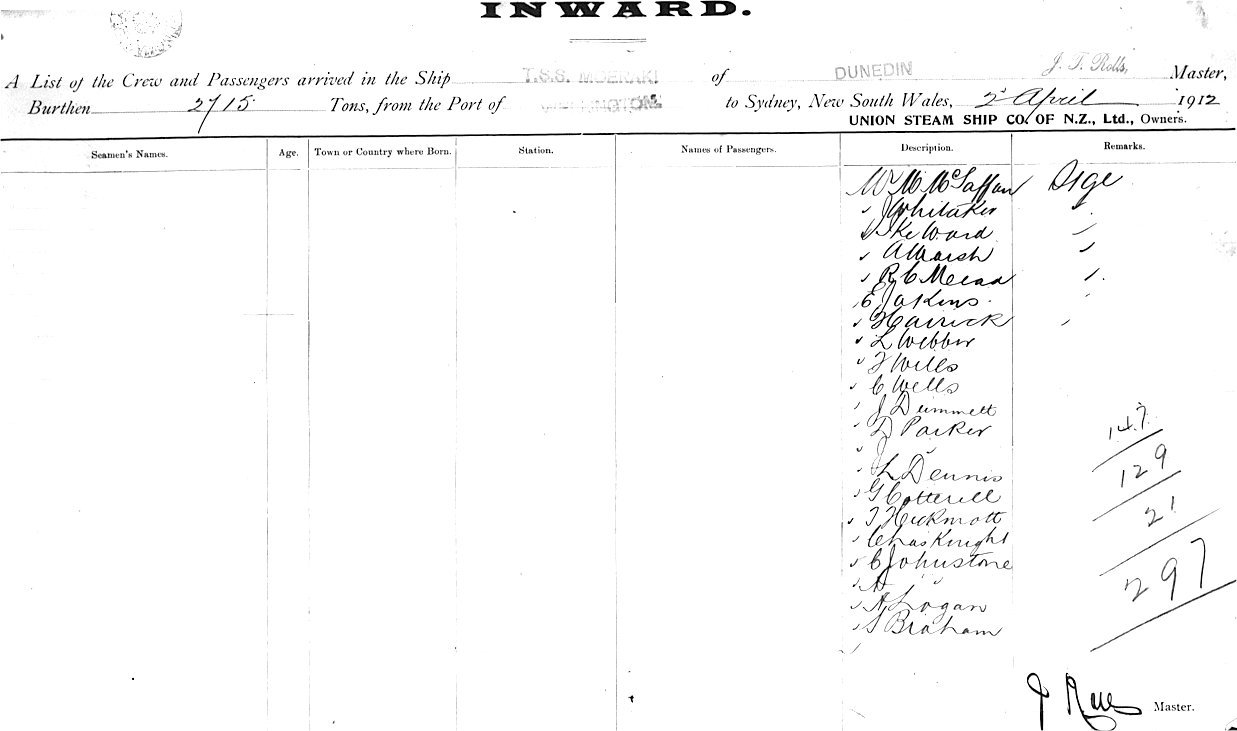 INWARD.
A List of the Crew and Passengers arrived in the Ship T.S.S. MOERAKI of DUNEDIN J. F. Rolls, Master,
Burthen 2715 Tons, from the Port of WELLINGTON to Sydney, New South Wales, 2d April 1912
UNION STEAM SHIP CO. OF N.Z., Ltd., Owners.
Seamen's Names. Age. Town or Country where Born. Station. Names of Passengers. Description. Remarks.
Mr M McGaffan Stge
" J Whitaker "
" Ike Ward "
" A Marsh "
" R C Mead "
E Jakins "
" Harrick "
" L Webber
" F Wells
" C Wells
" J Dummett
" D Parker
" J "
" L Dennis
" G Cotterell
" T Hickmott
" Chas Knight
" C Johnstone
" A "
" A Logan
" S Braham
"
147
129
21
297
Master.